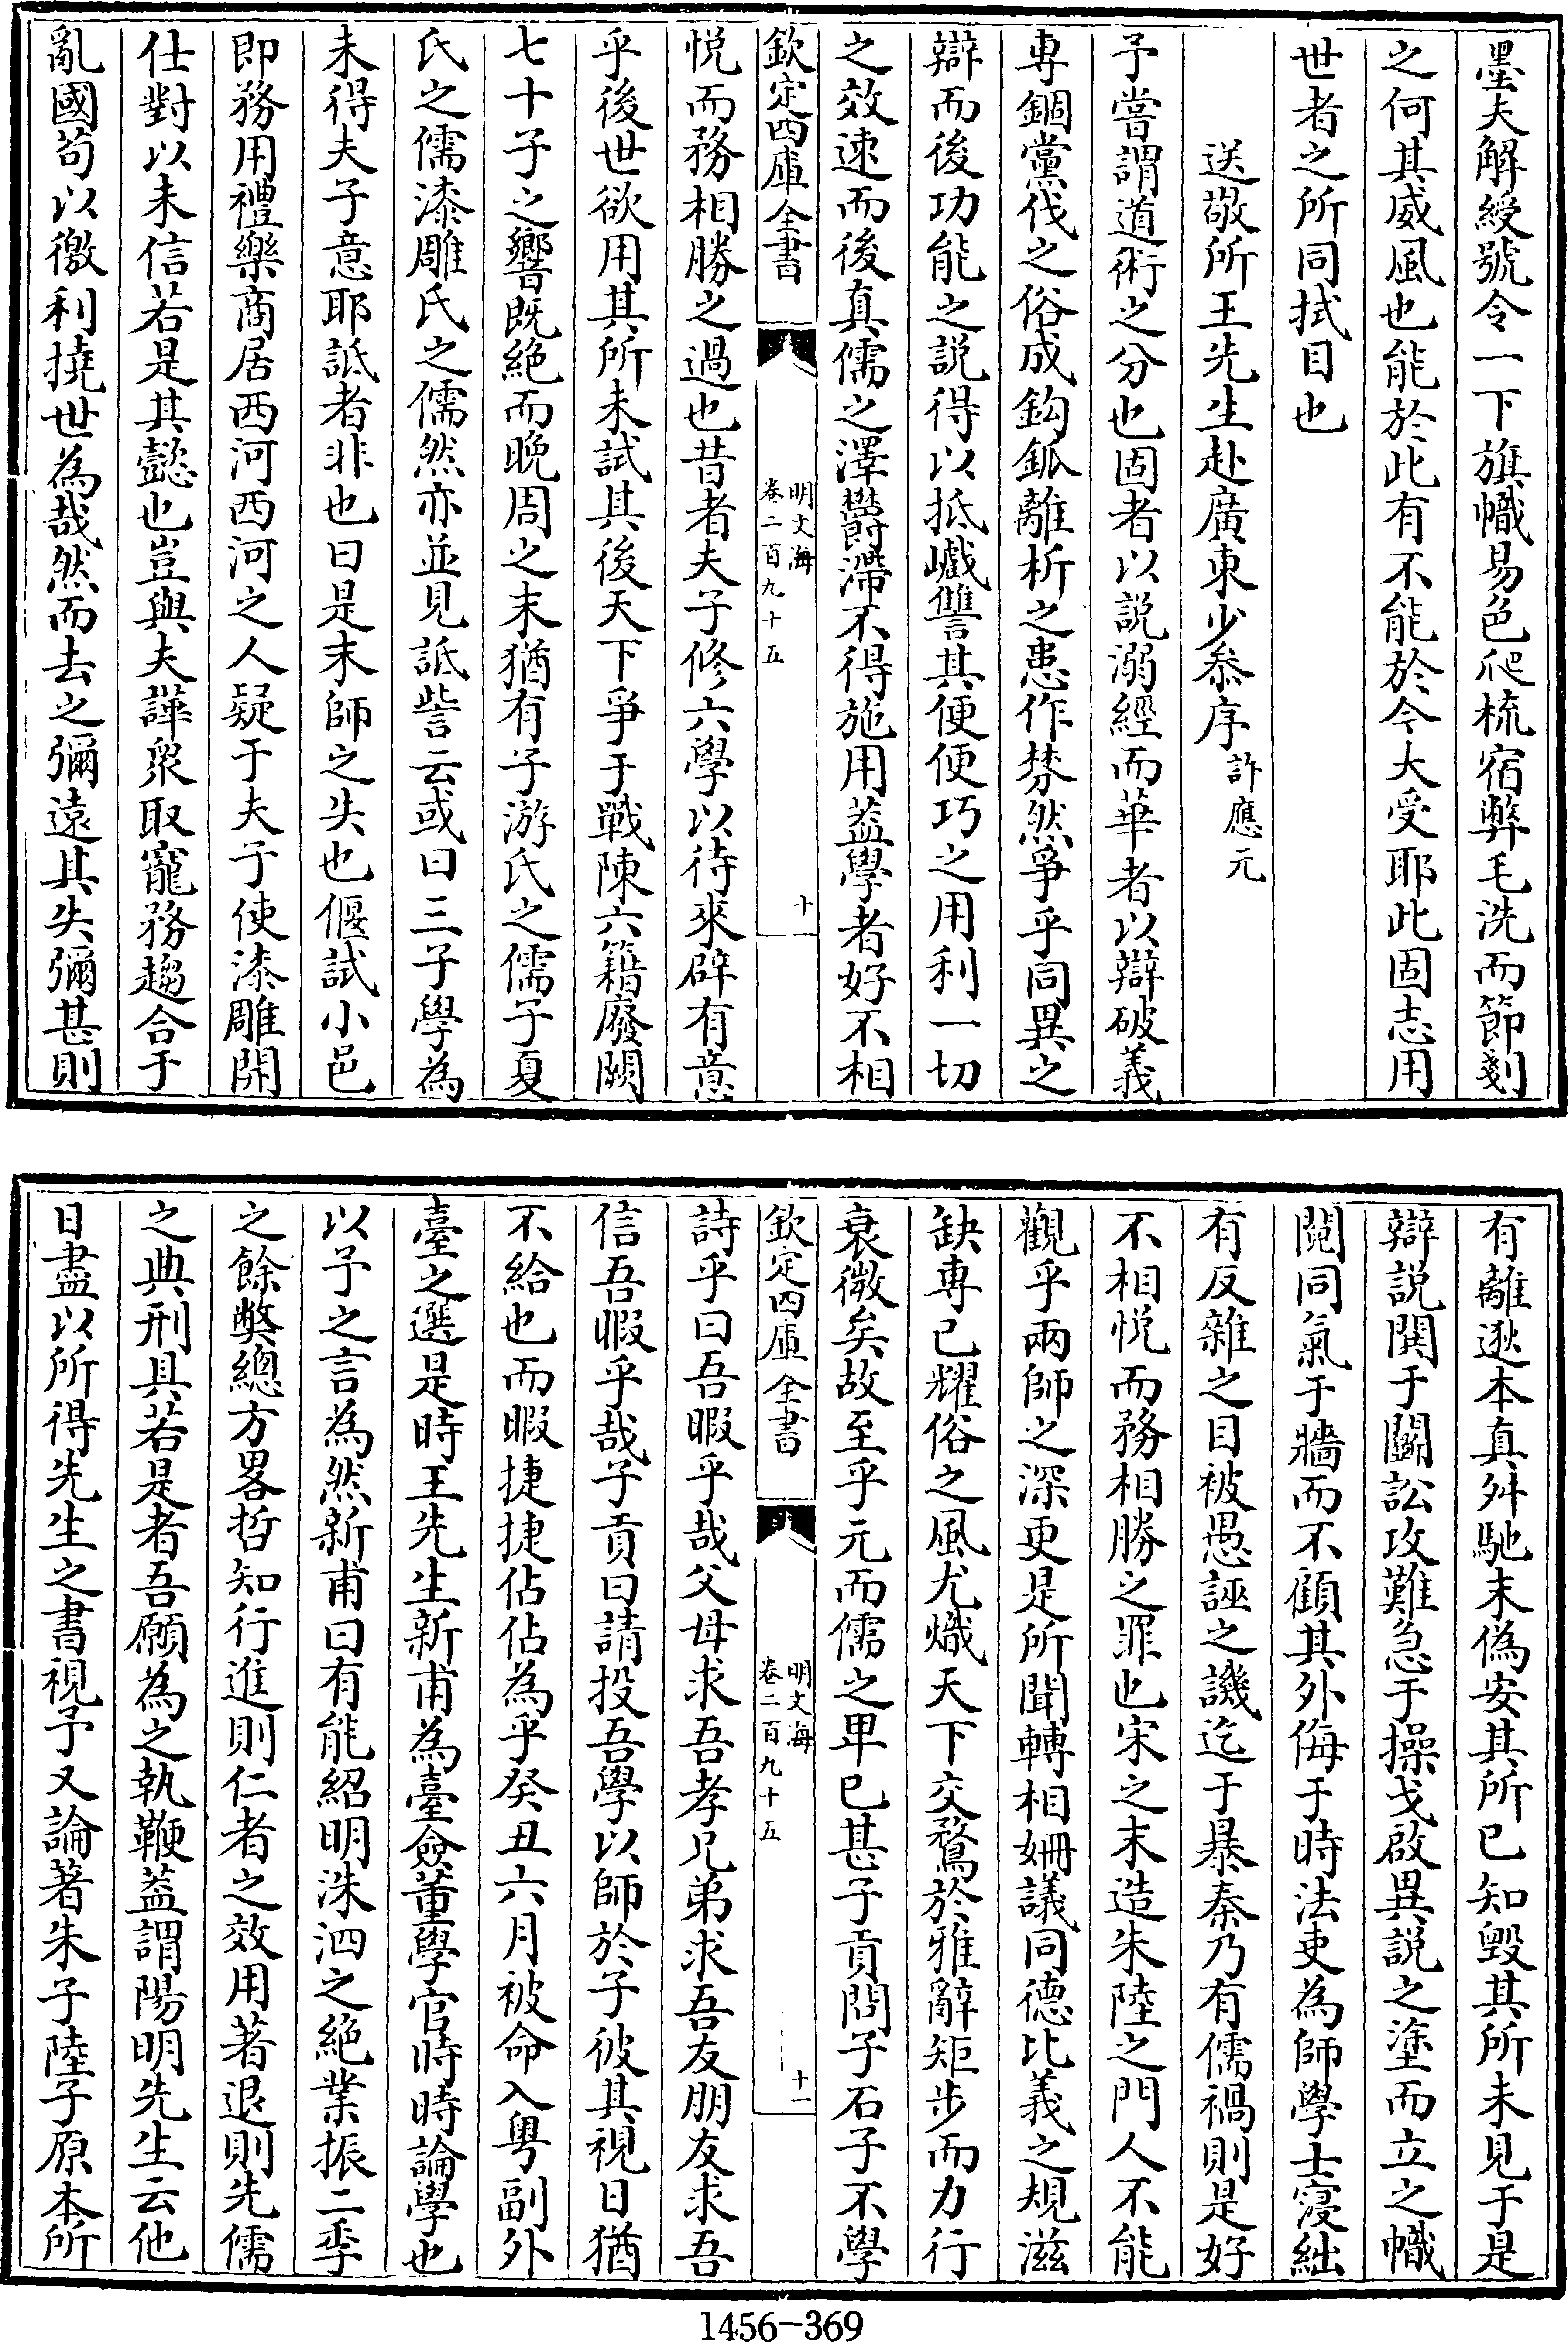 墨夫解綬號令一下旗幟易色爬梳宿弊毛洗而節剗
之何其威風也能於此有不能於今大受耶此固志用
世者之所同拭目也
送敬所王先生赴廣東少叅序許應元
予嘗謂道術之分也固者以説溺經而華者以辯破義
專錮黨伐之俗成鈎鈲離析之患作棼然爭乎同異之
辯而後功能之説得以抵巇讐其便便巧之用利一切
之效速而後真儒之澤欝滯不得施用葢學者好不相
欽定四庫全書
明文海
卷二百九十五
十
悦而務相勝之過也昔者夫子修六學以待來辟有意
乎後世欲用其所未試其後天下爭于戰陳六籍廢闕
七十子之響既絶而晚周之末猶有子游氏之儒子夏
氏之儒漆雕氏之儒然亦並見詆訾云或曰三子學為
未得夫子意耶詆者非也曰是末師之失也偃試小邑
即務用禮樂商居西河西河之人疑于夫子使漆雕開
仕對以未信若是其懿也豈與夫譁衆取寵務趨合于
亂國茍以徼利撓世為哉然而去之彌遠其失彌甚則
有離逖本真舛馳末偽安其所已知毀其所未見于是
辯説鬨于鬭訟攻難急于操戈啟異説之塗而立之幟
鬩同氣于牆而不顧其外侮于時法吏為師學士寖絀
有反雜之目被愚誣之譏迄于暴秦乃有儒禍則是好
不相悦而務相勝之罪也宋之末造朱陸之門人不能
觀乎兩師之深更是所聞轉相姍議同德比義之規滋
缺專已耀俗之風尤熾天下交騖於雅辭矩步而力行
衰微矣故至乎元而儒之卑已甚子貢問子石子不學
欽定四庫全書
明文海
卷二百九十五
十一
詩乎曰吾暇乎哉父母求吾孝兄弟求吾友朋友求吾
信吾暇乎哉子貢曰請投吾學以師於子彼其視日猶
不給也而暇捷捷佔佔為乎癸丑六月被命入粤副外
臺之選是時王先生新甫為臺僉董學官時時論學也
以予之言為然新甫曰有能紹明洙泗之絶業振二季
之餘獘總方畧哲知行進則仁者之效用著退則先儒
之典刑具若是者吾願為之執鞭葢謂陽明先生云他
日盡以所得先生之書視予又論著朱子陸子原本所
1456-369